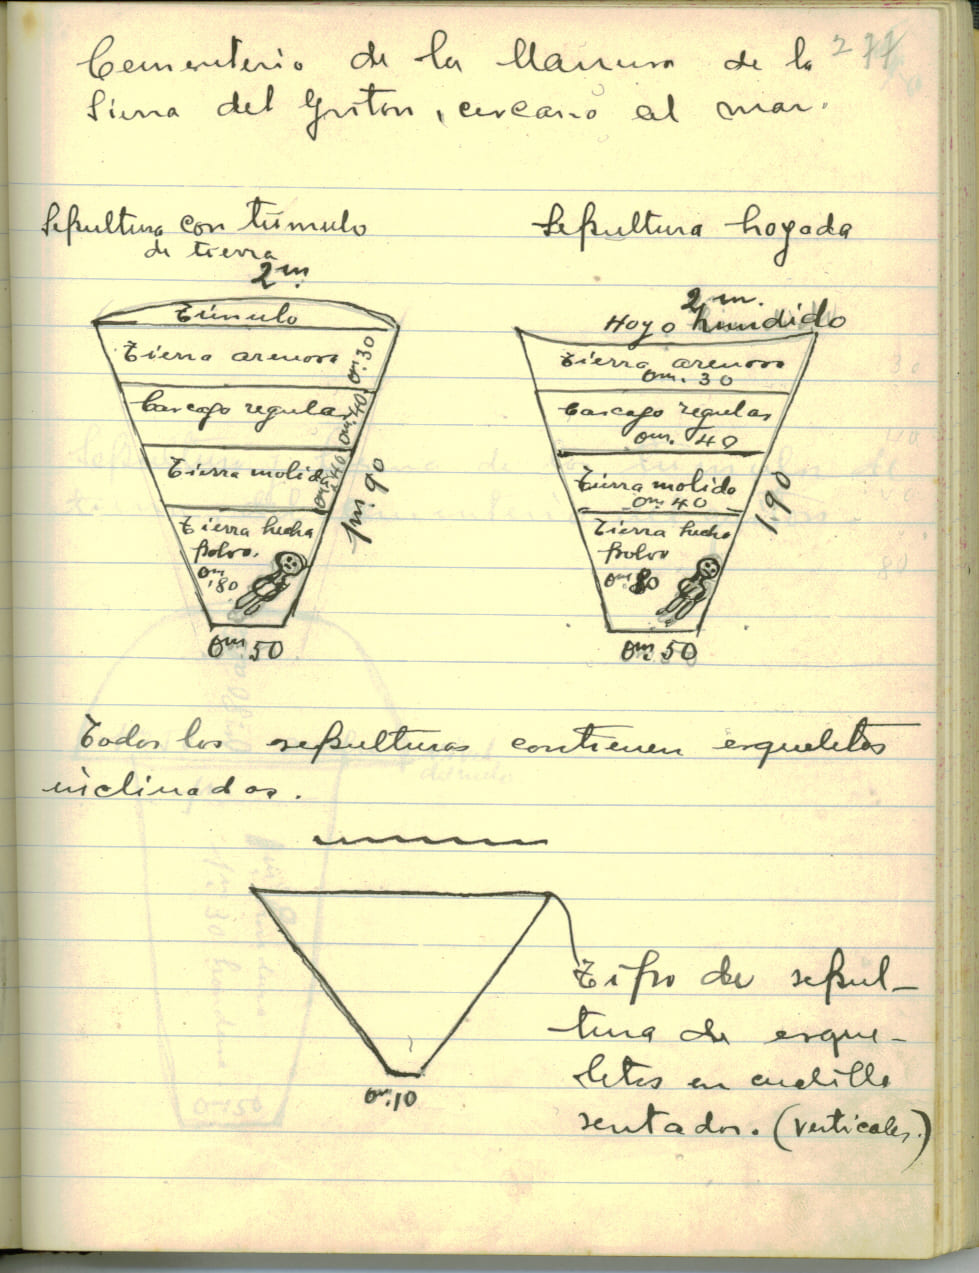 277
Cementerio de la llanura de la
Sierra del Gritón, cercano al mar.
Sepultura con túmulo
de tierra
2 m.
Túmulo
Tierra arenosa 0m.30
Cascajo regular 0m.40
Tierra molida 0m.40
Tierra hecha
polvo.
0m.80
1m.90
0m.50
Sepultura hoyada
2 m.
Hoyo hundido
Tierra arenosa
0m.30
Cascajo regular
0m.40
Tierra molida
0m.40
Tierra hecha
polvo
0m.80
1.90
0m.50
Todas las sepulturas contienen esqueletos
inclinados.
0m.10
Tipo de sepul-
tura de esque-
letos en cuclilla
sentados. (verticales.)